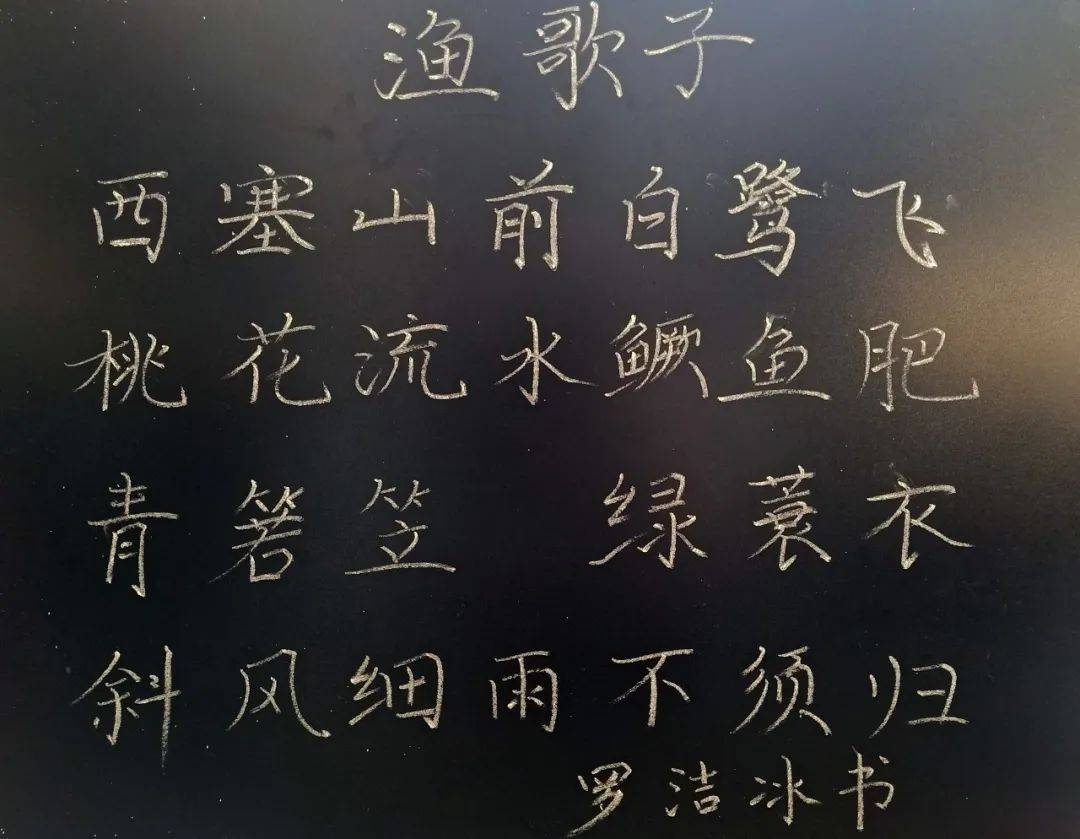 渔歌子
西塞山前白鹭飞
桃花流水鳜鱼肥
青箬笠 绿蓑衣
斜风细雨不须归
罗洁冰书